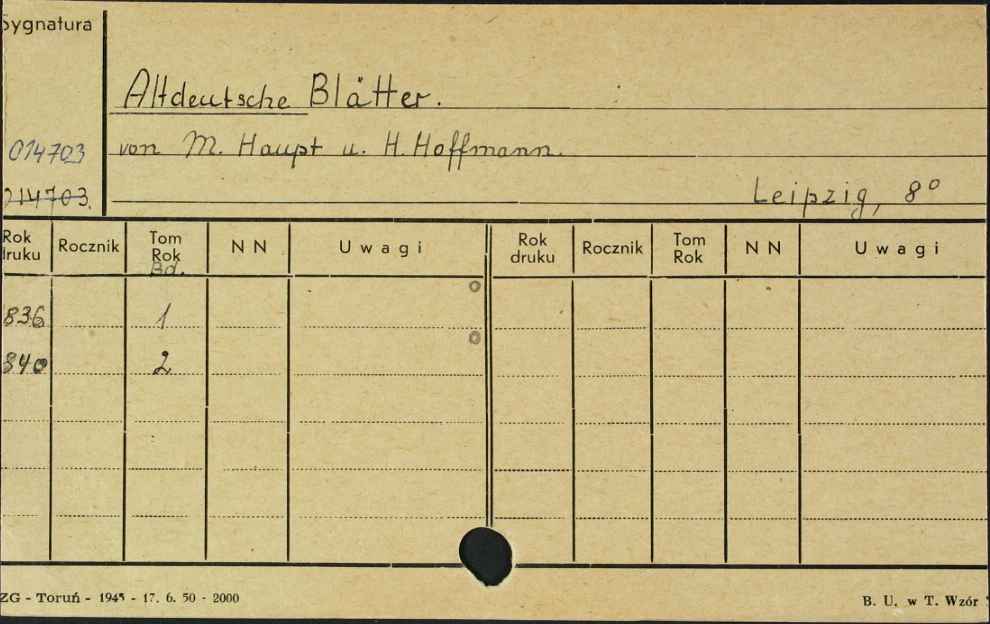 Sygnatura
Altdeutsche Blätter.
014703 von M. Haupt u. H. Hoffmann.
014703. Leipzig, 8°
Rok druku Rocznik Tom Rok Bd. NN Uwagi Rok druku Rocznik Tom Rok NN Uwagi
836 1
840 2
ZG - Toruń - 1945 - 17. 6. 50 - 2000 B. U. w T. Wzór